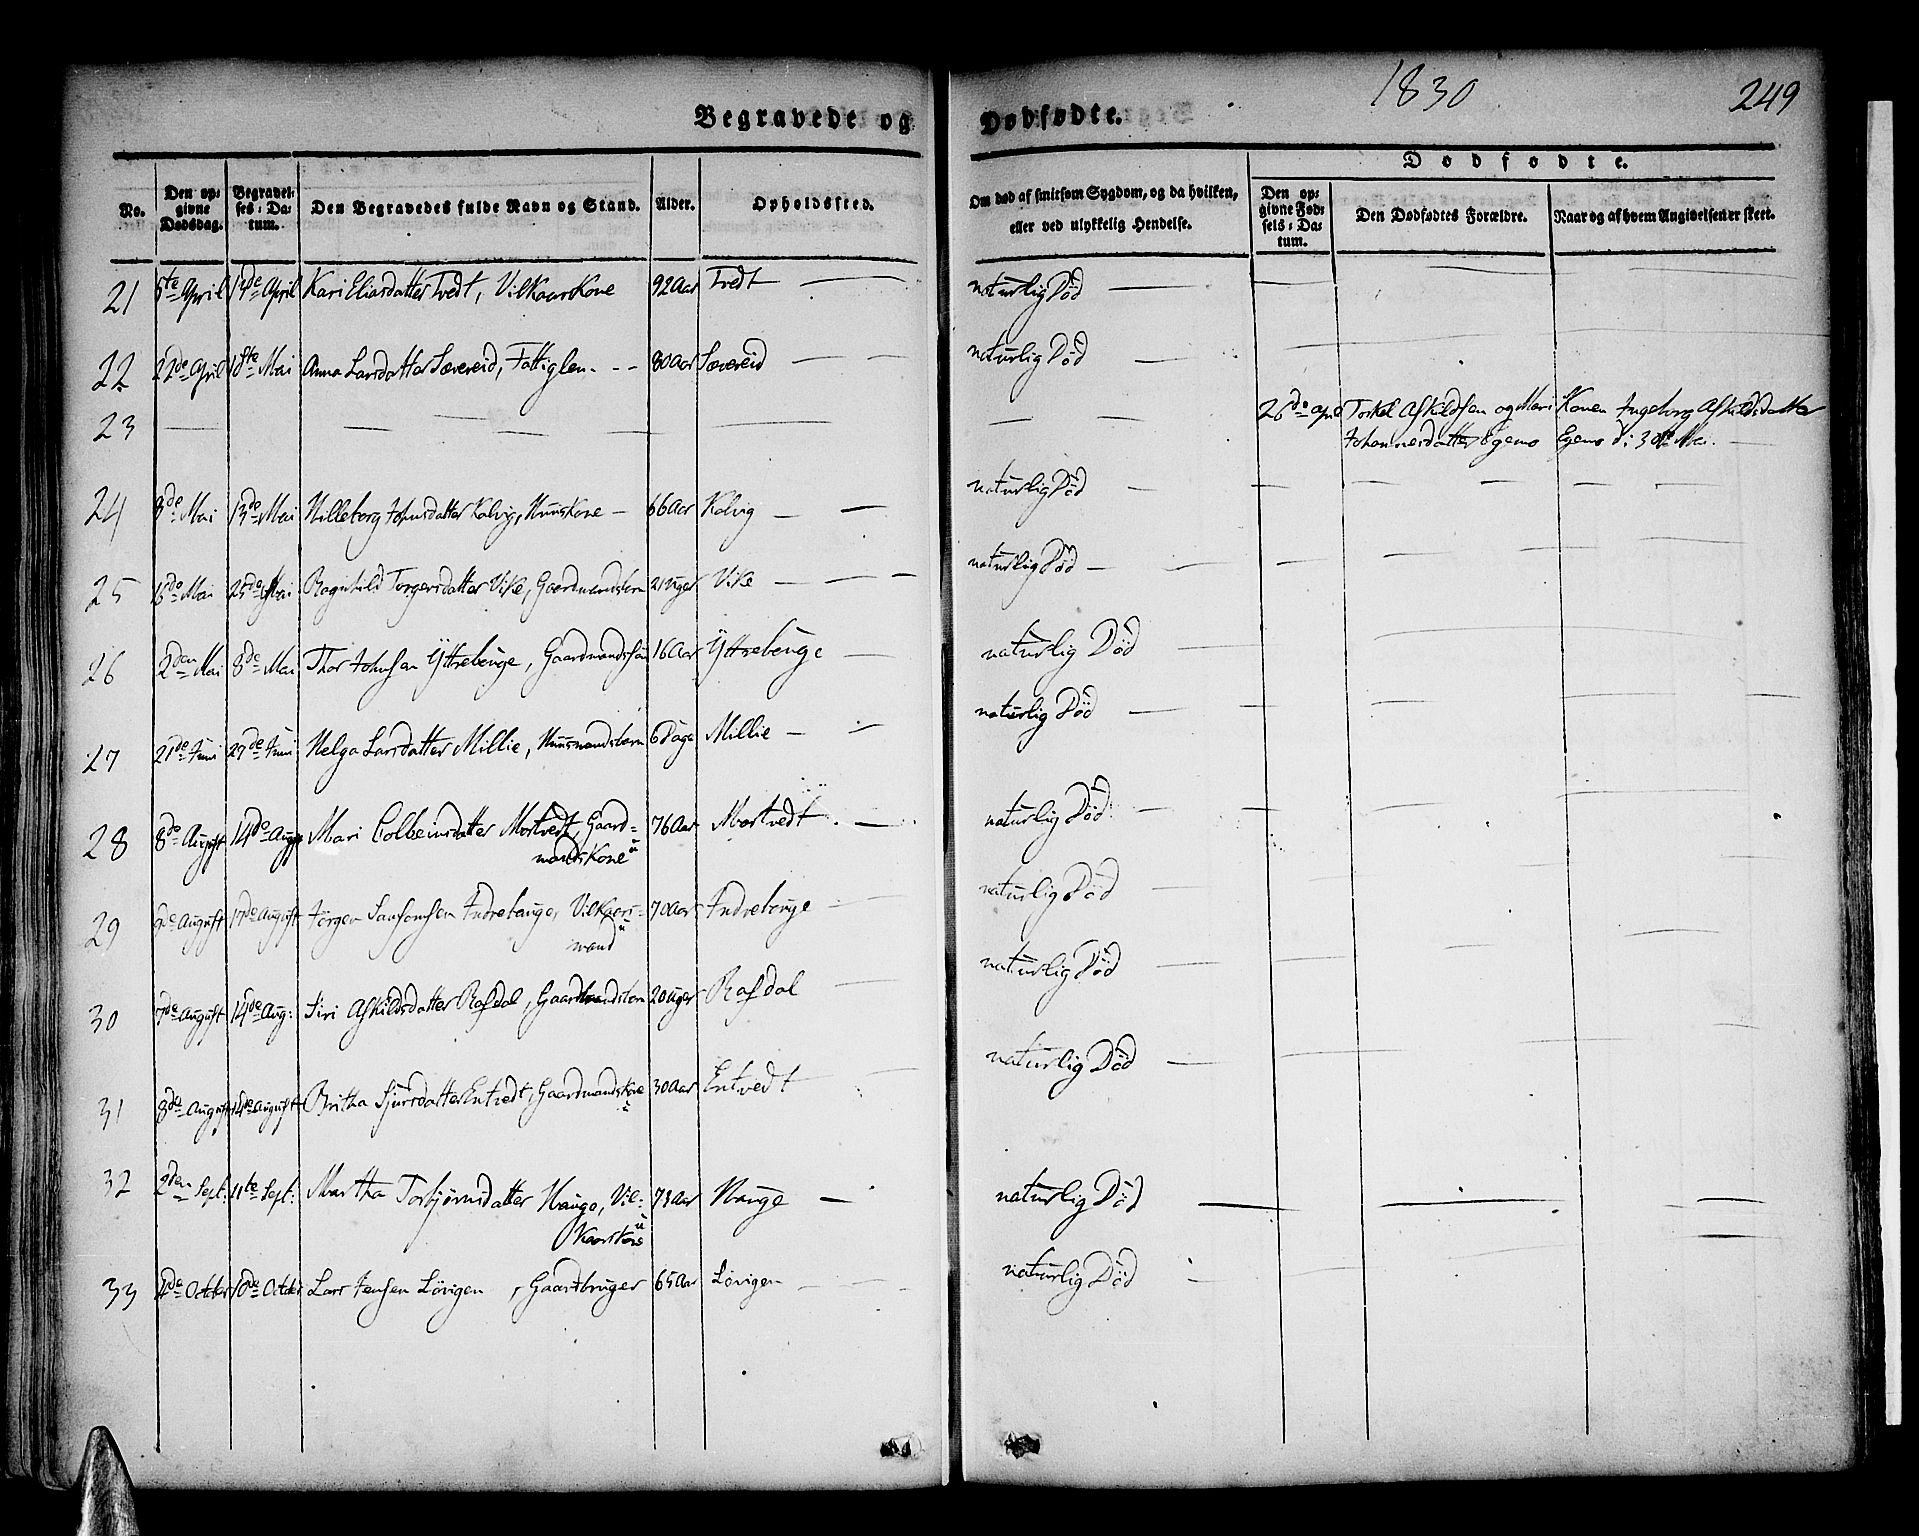 1830
249
Begravede og Dødfødte.
No.
Den opgivne Dødsdag.
Begravelses-Datum.
Den Begravedes fulde Navn og Stand.
Alder.
Opholdssted.
Om død af smitsom Sygdom, og da hvilken,
eller ved ulykkelig Hendelse.
Dødfødte.
Den opgivne Fødsels-Datum.
Den Dødfødtes Forældre.
Naar og af hvem Angivelsen er skeet.
21 5te April 17de April Kari Eliasdatter Tvedt, Vilkaarskone 92 Aar Tvedt naturlig Død
22 22de April 18ste Mai Anna Larsdatter Sævereid, Fattiglem 80 Aar Sævereid naturlig Død
23 26de April Torkel Askildsen og Mari Konen Ingeborg Askildsdatter
Johannesdatter Egenes Egenes d: 30te Mai.
24 8de Mai 13de Mai Hilleborg Johnsdatter Kalvig, Huuskone 66 Aar Kalvig naturlig Død
25 16de Mai 25de Mai Ragnhild Torgersdatter Vike, Gaardmandsbarn 21 Uger Vike naturlig Død
26 2den Mai 8de Mai Thor Johnsen Yttrebøuge, Gaardmandssøn 16 Aar Yttrebøuge naturlig Død
27 21de Juni 27de Juni Helga Larsdatter Millie, Huusmandsbarn 6 Dage Millie naturlig Død
28 8de August 14de Aug Mari Colbeinsdatter Mortvedt, Gaard-
mandskone 76 Aar Mortvedt naturlig Død
29 August 17de August Jørgen Samsonsen Indrebøuge, Vilkaars-
mand 70 Aar Indrebøuge naturlig Død
30 7de August 14de Aug: Siri Askildsdatter Rafdal, Gaardmandsbarn 20 Uger Rafdal naturlig Død
31 8de August 14de August Britha Sjursdatter Entvedt, Gaardmandskone 30 Aar Entvedt naturlig Død
32 2den Sept: 11te Sept: Martha Torbjørnsdatter Hauge, Vil-
kaarskone 73 Aar Hauge naturlig Død
33 4de Octber 10de Octber Lars Jensen Løvigen, Gaardbruger 65 Aar Løvigen naturlig Død